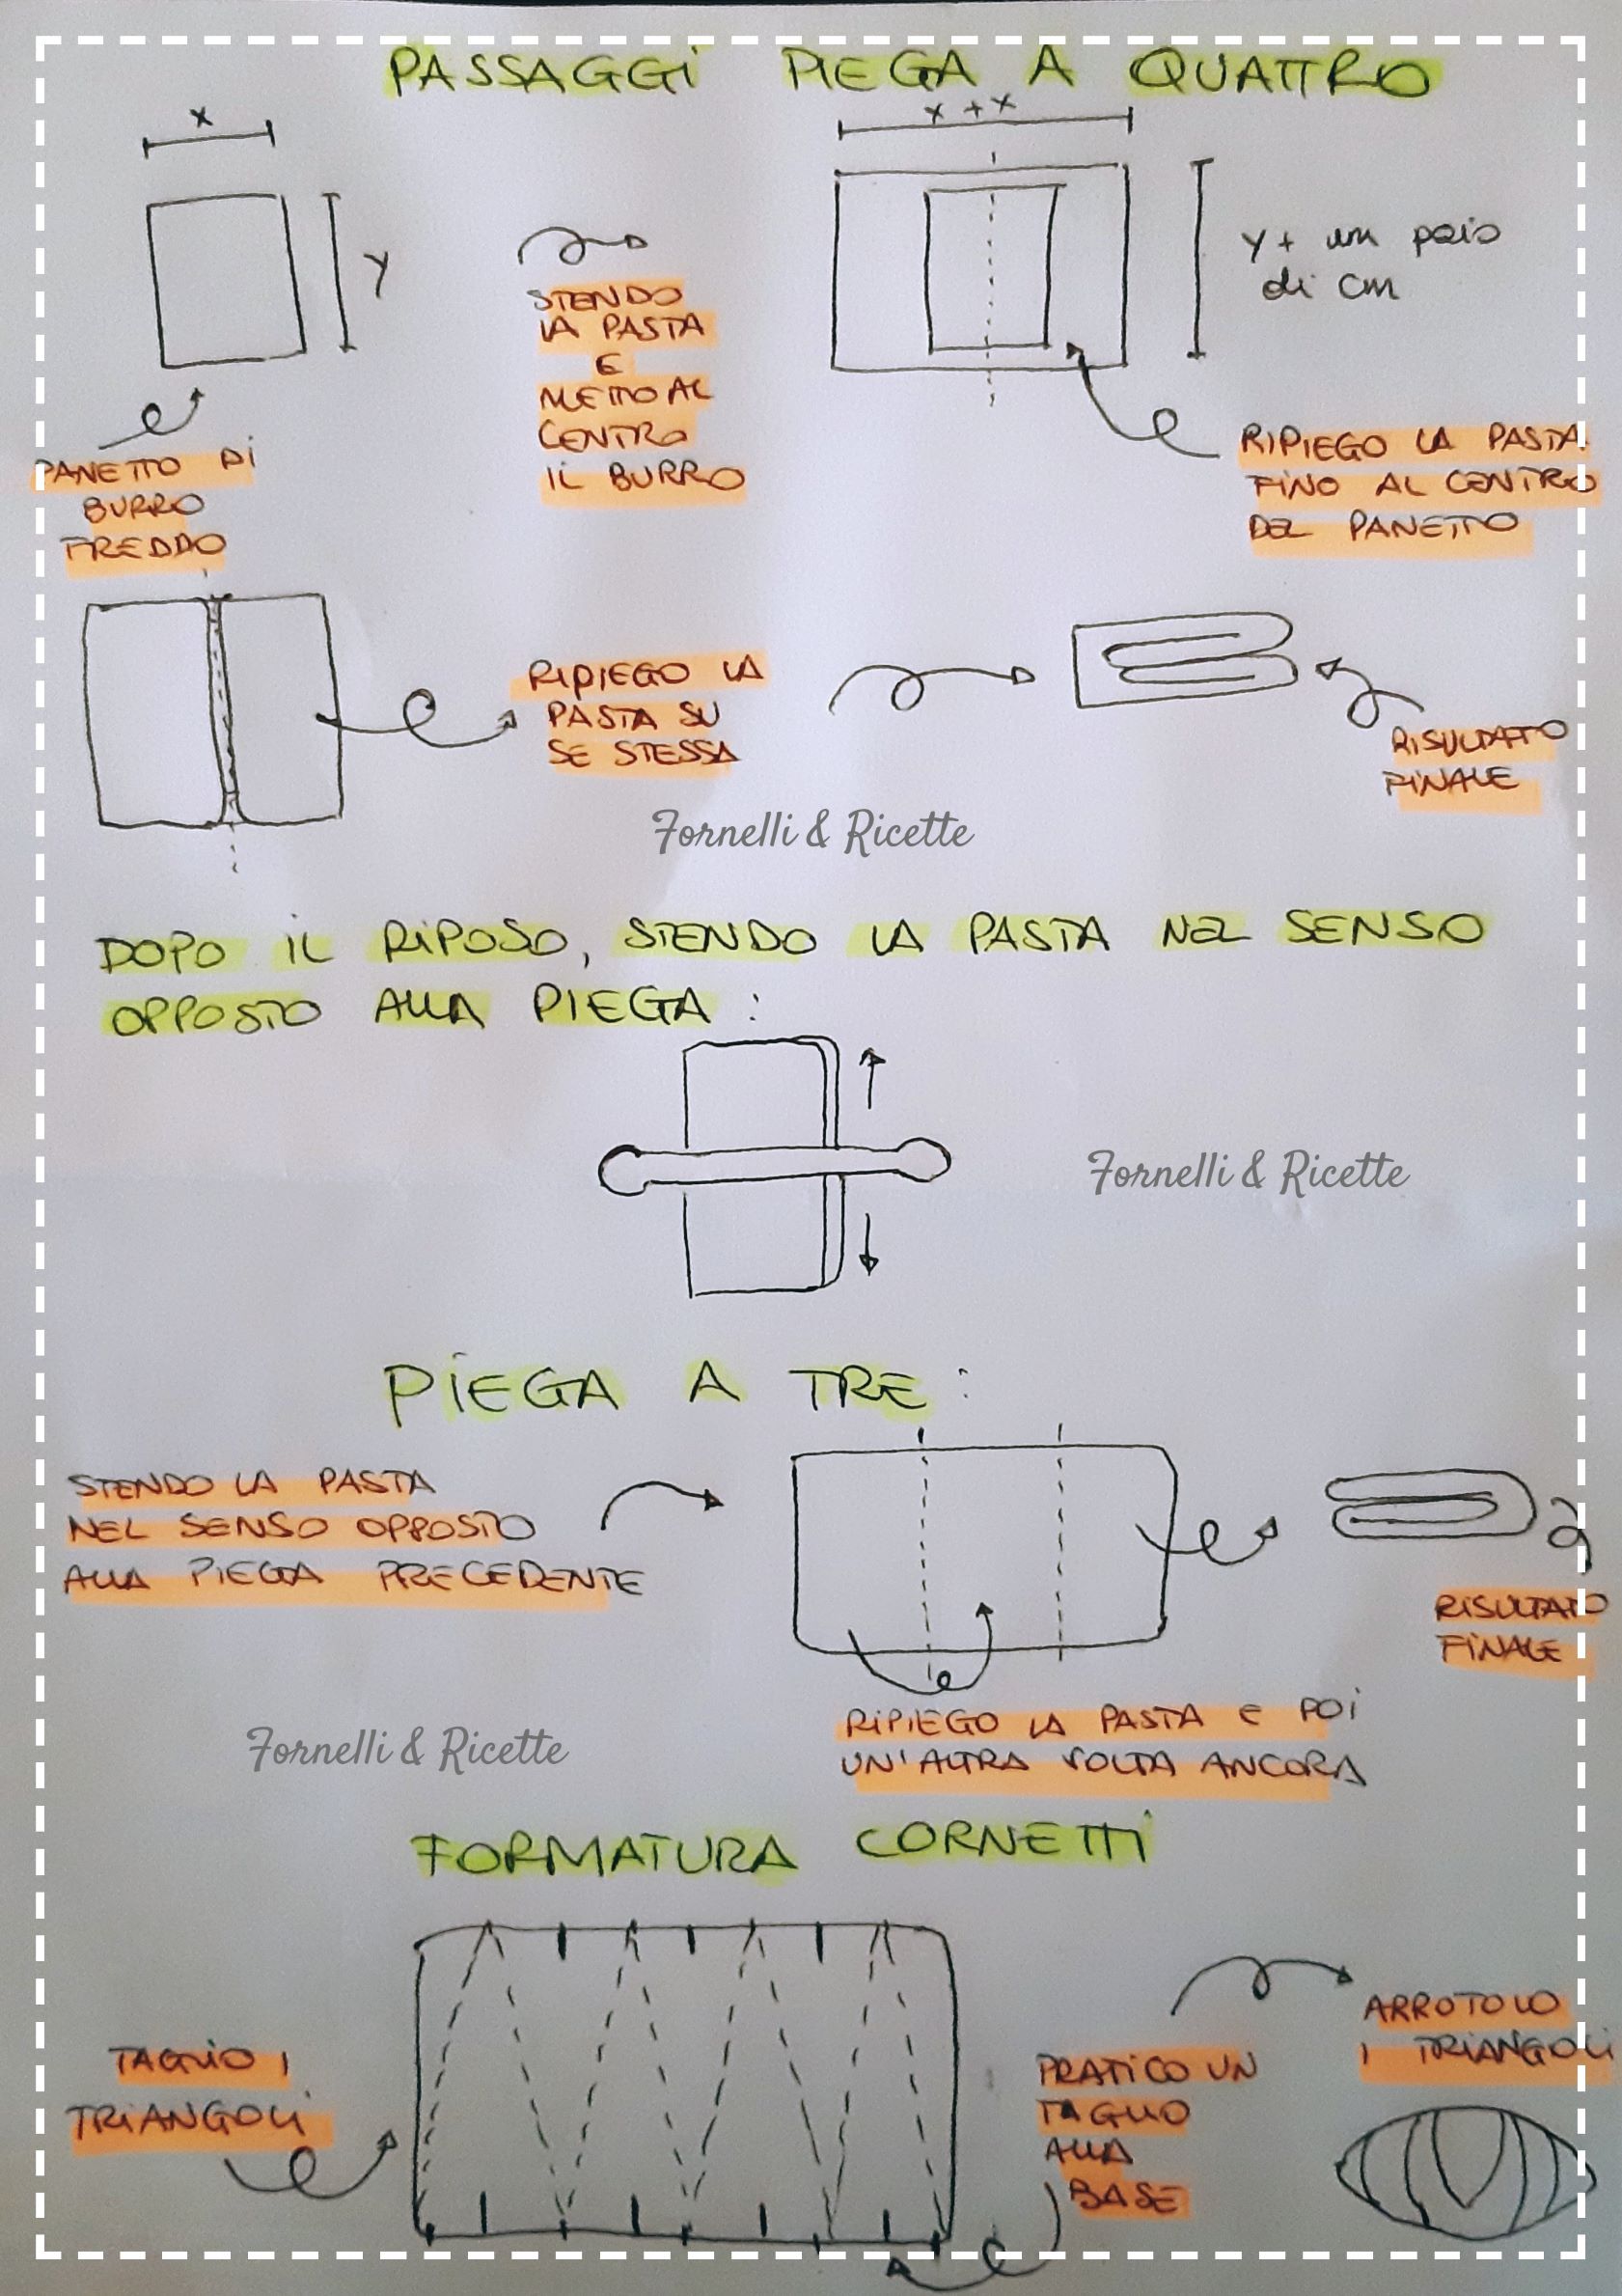 PASSAGGI PIEGA A QUATTRO
x
x + x
y
y + un paio
di cm
STENDO
LA PASTA
E
METTO AL
CENTRO
IL BURRO
PANETTO DI
BURRO
FREDDO
RIPIEGO LA PASTA
FINO AL CENTRO
DEL PANETTO
RIPIEGO LA
PASTA SU
SE STESSA
RISULTATO
FINALE
Fornelli & Ricette
DOPO IL RIPOSO, STENDO LA PASTA NEL SENSO
OPPOSTO ALLA PIEGA:
Fornelli & Ricette
PIEGA A TRE:
STENDO LA PASTA
NEL SENSO OPPOSTO
ALLA PIEGA PRECEDENTE
RISULTATO
FINALE
RIPIEGO LA PASTA E POI
UN'ALTRA VOLTA ANCORA
Fornelli & Ricette
FORMATURA CORNETTI
TAGLIO I
TRIANGOLI
PRATICO UN
TAGLIO
ALLA
BASE
ARROTOLO
I TRIANGOLI